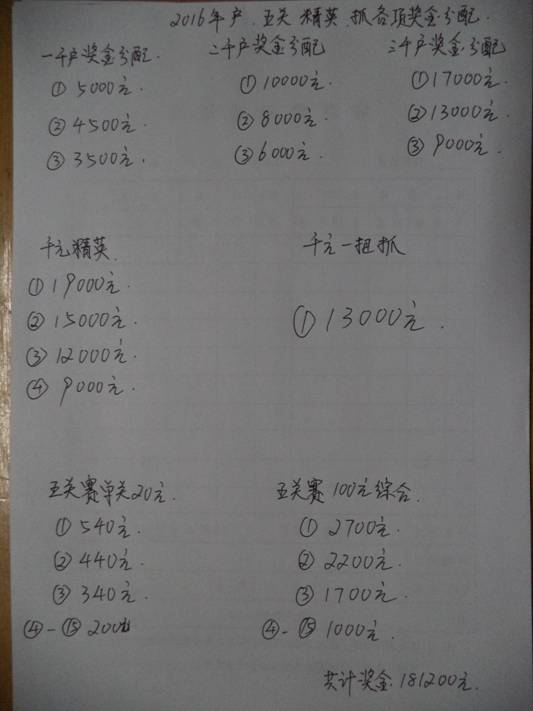 2016年户.五关 精英.抓各项奖金分配.
一千户奖金分配. 二千户奖金分配 三千户奖金分配.
①5000元. ①10000元. ①17000元.
②4500元. ②8000元. ②13000元.
③3500元. ③6000元. ③9000元.
千元精英. 千元一把抓
①19000元.
②15000元. ①13000元.
③12000元.
④9000元.
五关赛单关20元. 五关赛100元综合.
①540元. ①2700元.
②440元. ②2200元.
③340元. ③1700元.
④-⑮200元 ④-⑮1000元.
共计奖金.181200元.